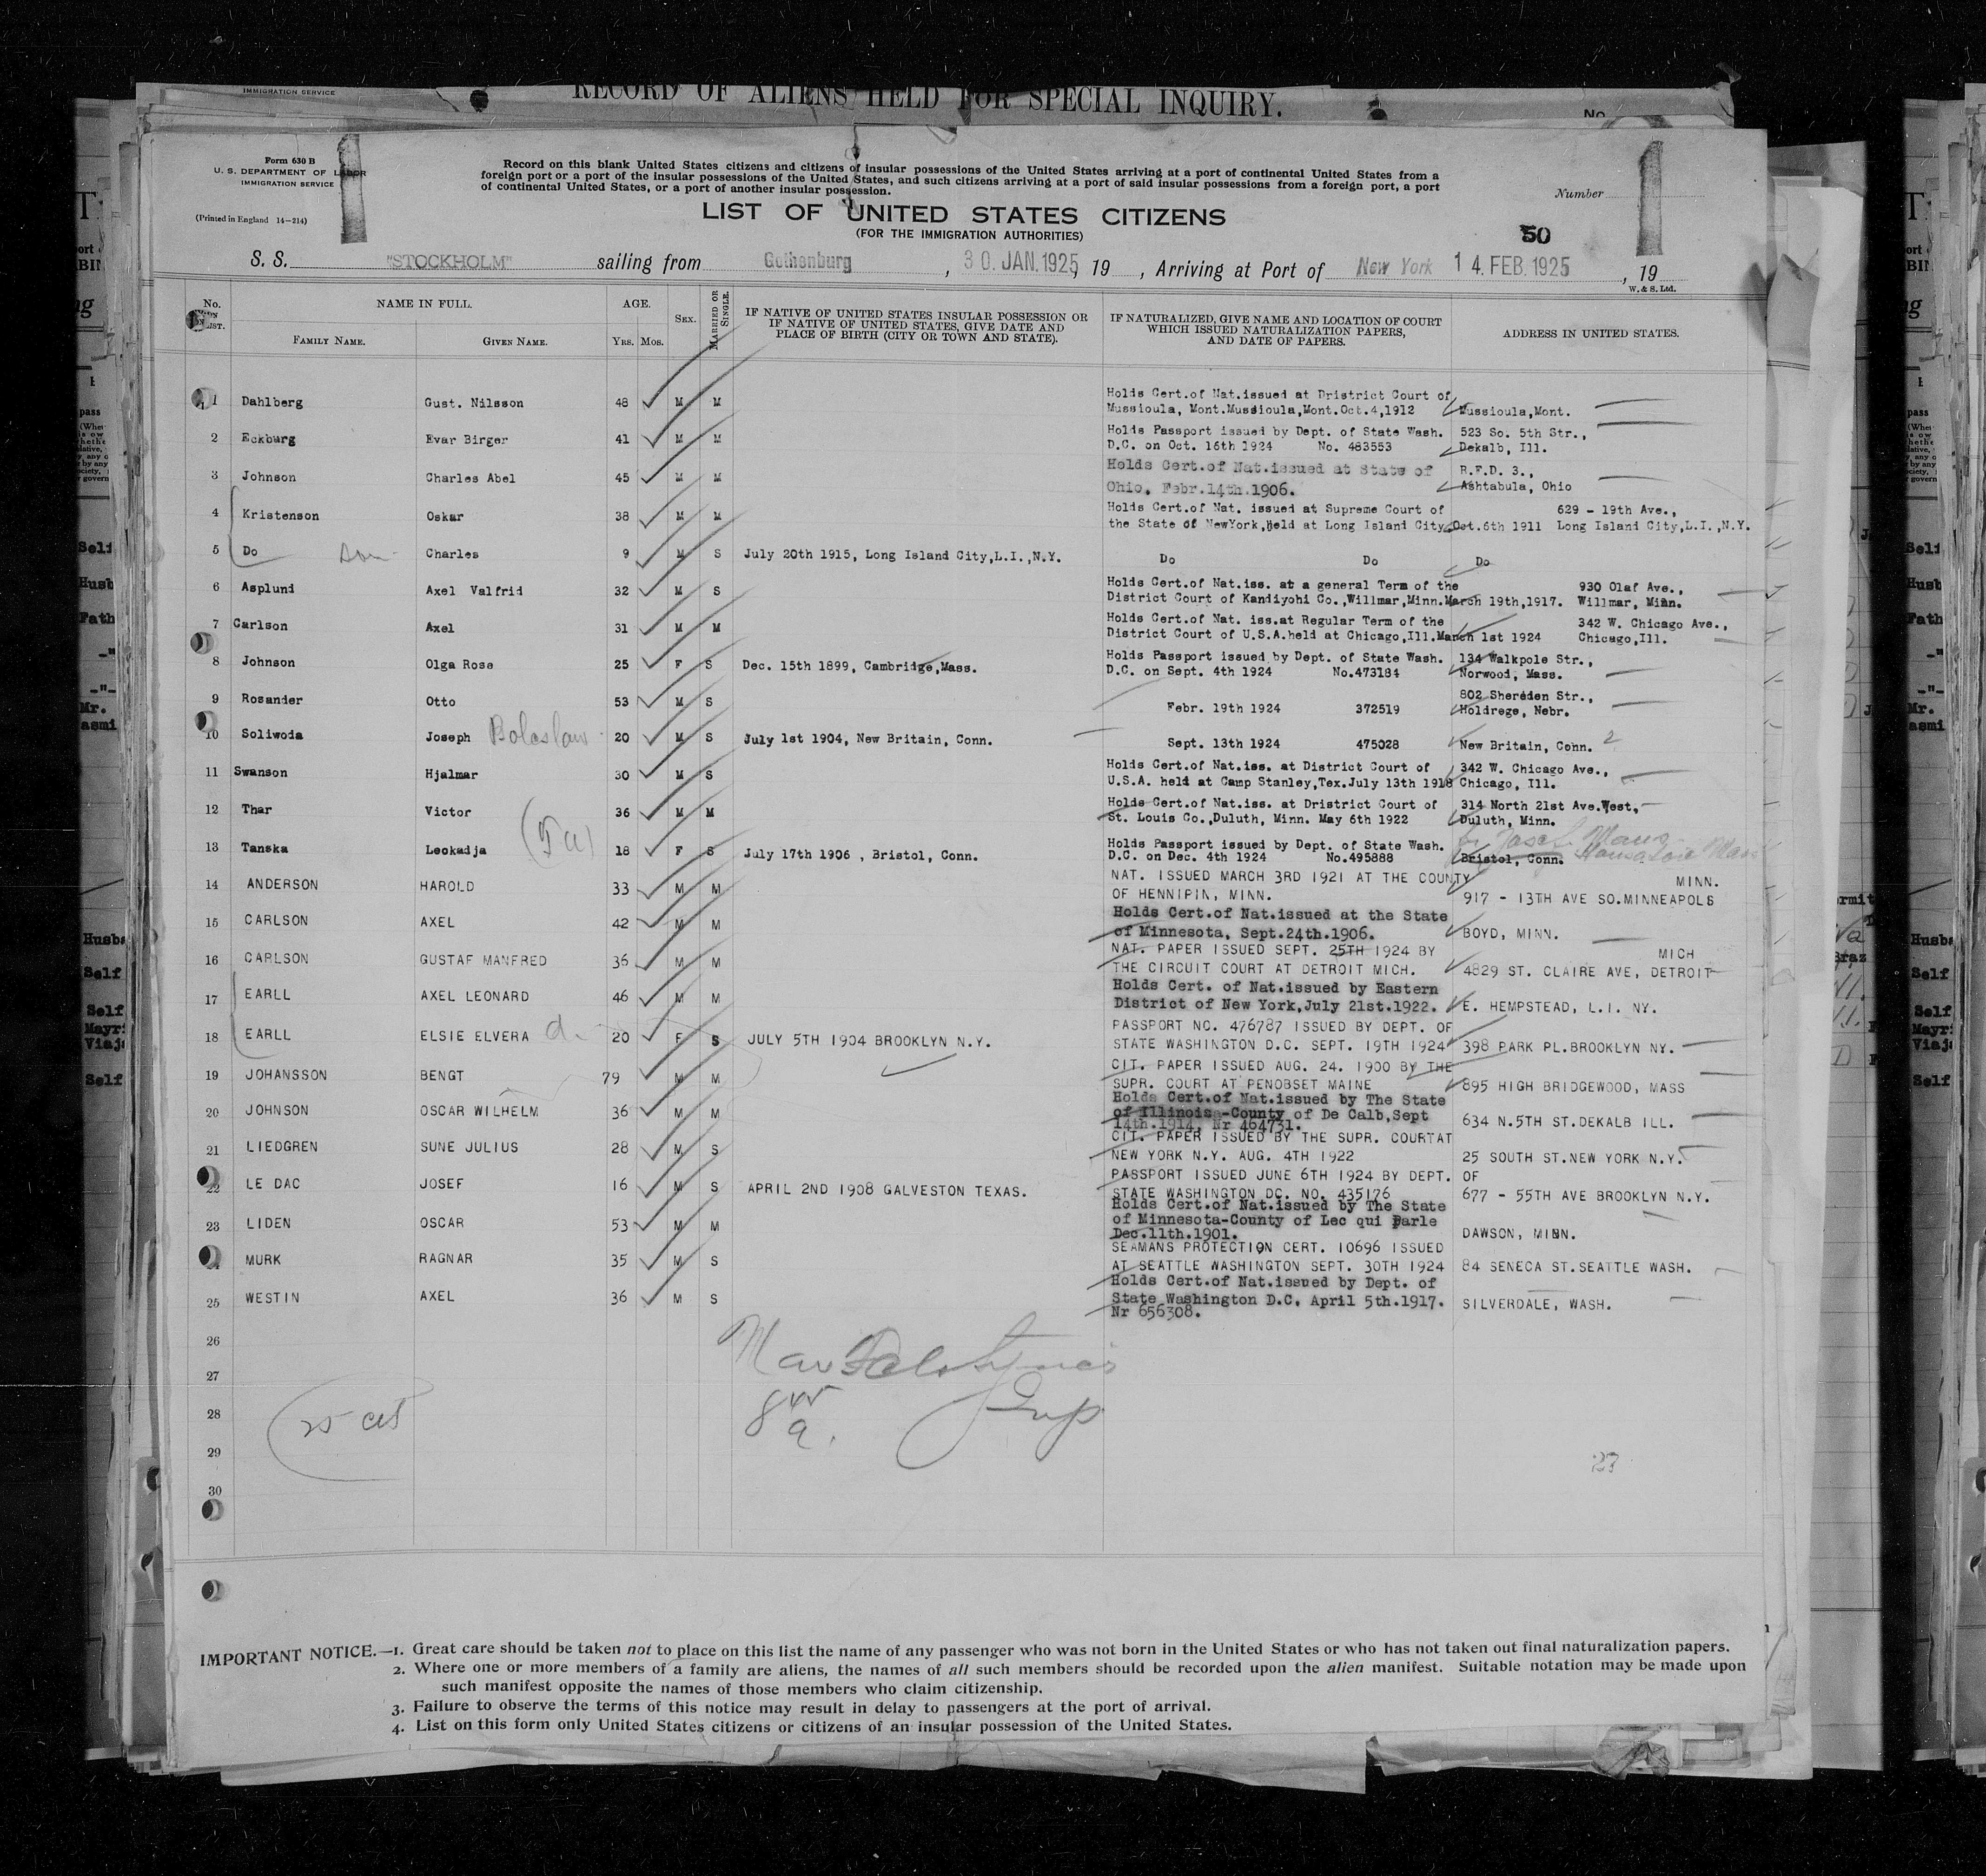 IMMIGRATION SERVICE
RECORD OF ALIENS HELD FOR SPECIAL INQUIRY.
No.
Form 630 B
U. S. DEPARTMENT OF LABOR
IMMIGRATION SERVICE
(Printed in England 14—214)
Record on this blank United States citizens and citizens of insular possessions of the United States arriving at a port of continental United States from a
foreign port or a port of the insular possessions of the United States, and such citizens arriving at a port of said insular possessions from a foreign port, a port
of continental United States, or a port of another insular possession.
Number
1
1
LIST OF UNITED STATES CITIZENS
(FOR THE IMMIGRATION AUTHORITIES)
50
S. S. "STOCKHOLM" sailing from Gothenburg, 30. JAN. 1925, 19 , Arriving at Port of New York 14. FEB. 1925, 19
W. & S. Ltd.
No. LIST. NAME IN FULL. AGE. SEX. MARRIED OR SINGLE. IF NATIVE OF UNITED STATES INSULAR POSSESSION OR IF NATIVE OF UNITED STATES, GIVE DATE AND PLACE OF BIRTH (CITY OR TOWN AND STATE). IF NATURALIZED, GIVE NAME AND LOCATION OF COURT WHICH ISSUED NATURALIZATION PAPERS, AND DATE OF PAPERS. ADDRESS IN UNITED STATES.
FAMILY NAME. GIVEN NAME. YRS. MOS.
Holds Cert.of Nat.issued at Dristrict Court of
1 Dahlberg Gust. Nilsson 48 M M Mussioula, Mont.Mussioula,Mont.Oct.4,1912 Mussioula,Mont.
Holds Passport issued by Dept. of State Wash. 523 So. 5th Str.,
2 Eckburg Evar Birger 41 M M D.C. on Oct. 16th 1924 No. 483553 Dekalb, Ill.
Holds Cert.of Nat.issued at State of R.F.D. 3.,
3 Johnson Charles Abel 45 M M Ohio. Febr.14th.1906. Ashtabula, Ohio
Holds Cert.of Nat. issued at Supreme Court of 629 - 19th Ave.,
4 Kristenson Oskar 38 M M the State of NewYork,held at Long Island City,Oct.6th 1911 Long Island City,L.I.,N.Y.
5 Do son Charles 9 M S July 20th 1915, Long Island City,L.I.,N.Y. Do Do Do
Holds Cert.of Nat.iss. at a general Term of the 930 Olaf Ave.,
6 Asplund Axel Valfrid 32 M S District Court of Kandiyohi Co.,Willmar,Minn.March 19th,1917. Willmar, Minn.
Holds Cert.of Nat. iss.at Regular Term of the 342 W. Chicago Ave.,
7 Carlson Axel 31 M M District Court of U.S.A.held at Chicago,Ill.March 1st 1924 Chicago,Ill.
Holds Passport issued by Dept. of State Wash. 134 Walkpole Str.,
8 Johnson Olga Rose 25 F S Dec. 15th 1899, Cambridge,Mass. D.C. on Sept. 4th 1924 No.473184 Norwood, Mass.
802 Shereden Str.,
9 Rosander Otto 53 M S Febr. 19th 1924 372519 Holdrege, Nebr.
10 Soliwoda Joseph Boleslaw 20 M S July 1st 1904, New Britain, Conn. Sept. 13th 1924 475028 New Britain, Conn. 2
Holds Cert.of Nat.iss. at District Court of 342 W. Chicago Ave.,
11 Swanson Hjalmar 30 M S U.S.A. held at Camp Stanley,Tex.July 13th 1918 Chicago, Ill.
Holds Cert.of Nat.iss. at Dristrict Court of 314 North 21st Ave.West,
12 Thar Victor 36 M M St. Louis Co.,Duluth, Minn. May 6th 1922 Duluth, Minn.
Holds Passport issued by Dept. of State Wash.
13 Tanska Leokadja 18 F S July 17th 1906 , Bristol, Conn. D.C. on Dec. 4th 1924 No.495888 Bristol, Conn.
NAT. ISSUED MARCH 3RD 1921 AT THE COUNTY MINN.
14 ANDERSON HAROLD 33 M M OF HENNIPIN, MINN. 917 - 13TH AVE SO.MINNEAPOLS
Holds Cert.of Nat.issued at the State
15 CARLSON AXEL 42 M M of Minnesota, Sept.24th.1906. BOYD, MINN.
NAT. PAPER ISSUED SEPT. 25TH 1924 BY MICH
16 CARLSON GUSTAF MANFRED 36 M M THE CIRCUIT COURT AT DETROIT MICH. 4829 ST. CLAIRE AVE, DETROIT
Holds Cert. of Nat.issued by Eastern
17 EARLL AXEL LEONARD 46 M M District of New York,July 21st.1922. E. HEMPSTEAD, L.I. NY.
PASSPORT NO. 476787 ISSUED BY DEPT. OF
18 EARLL ELSIE ELVERA d. 20 F S JULY 5TH 1904 BROOKLYN N.Y. STATE WASHINGTON D.C. SEPT. 19TH 1924 398 PARK PL.BROOKLYN NY.
CIT. PAPER ISSUED AUG. 24. 1900 BY THE
19 JOHANSSON BENGT 79 M M SUPR. COURT AT PENOBSET MAINE 895 HIGH BRIDGEWOOD, MASS
Holds Cert.of Nat.issued by The State
20 JOHNSON OSCAR WILHELM 36 M M of Illinois-County of De Calb,Sept 634 N.5TH ST.DEKALB ILL.
14th.1914, Nr 464731.
CIT. PAPER ISSUED BY THE SUPR. COURTAT
21 LIEDGREN SUNE JULIUS 28 M S NEW YORK N.Y. AUG. 4TH 1922 25 SOUTH ST.NEW YORK N.Y.
PASSPORT ISSUED JUNE 6TH 1924 BY DEPT. OF
22 LE DAC JOSEF 16 M S APRIL 2ND 1908 GALVESTON TEXAS. STATE WASHINGTON DC. NO. 435176 677 - 55TH AVE BROOKLYN N.Y.
Holds Cert.of Nat.issued by The State
23 LIDEN OSCAR 53 M M of Minnesota-County of Lec qui Parle DAWSON, MINN.
Dec.11th.1901.
SEAMANS PROTECTION CERT. 10696 ISSUED
MURK RAGNAR 35 M S AT SEATTLE WASHINGTON SEPT. 30TH 1924 84 SENECA ST.SEATTLE WASH.
Holds Cert.of Nat.issued by Dept. of
25 WESTIN AXEL 36 M S State Washington D.C. April 5th.1917. SILVERDALE, WASH.
Nr 656308.
26
27
28
29
30
Insp
25 cit
27
IMPORTANT NOTICE.—1. Great care should be taken not to place on this list the name of any passenger who was not born in the United States or who has not taken out final naturalization papers.
2. Where one or more members of a family are aliens, the names of all such members should be recorded upon the alien manifest. Suitable notation may be made upon
such manifest opposite the names of those members who claim citizenship.
3. Failure to observe the terms of this notice may result in delay to passengers at the port of arrival.
4. List on this form only United States citizens or citizens of an insular possession of the United States.